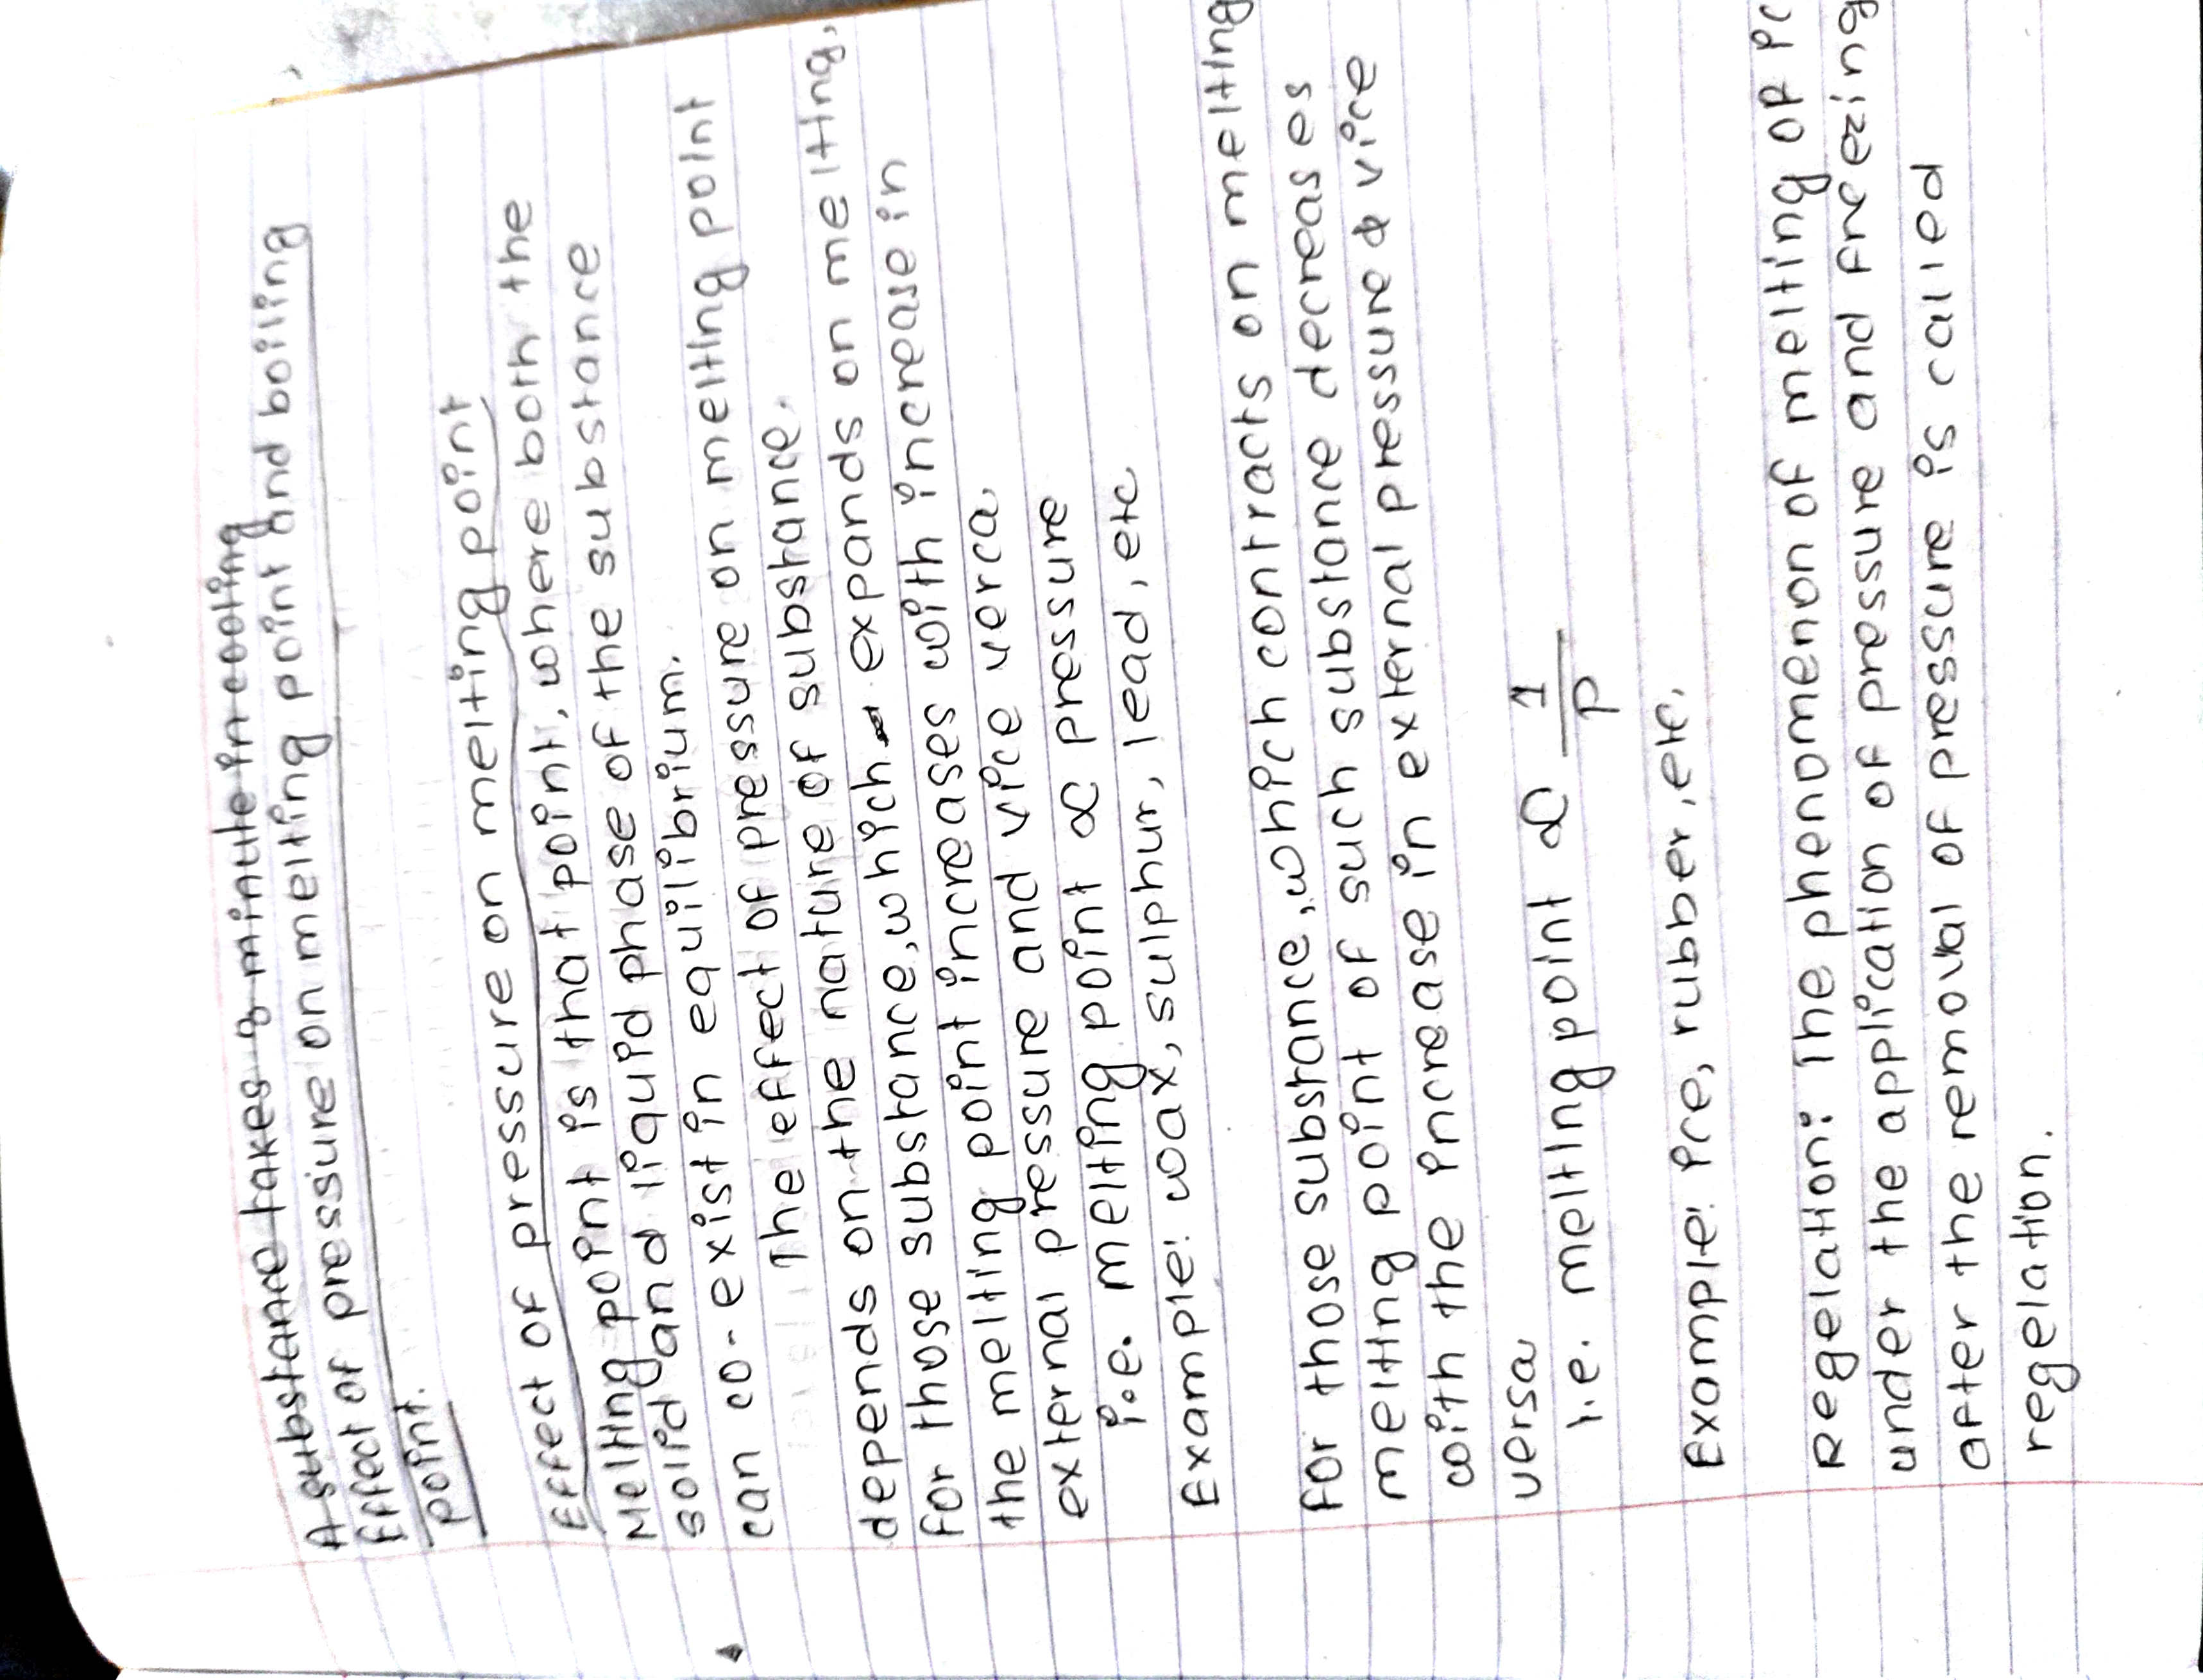 A substance takes 8 minute in cooling
Effect of pressure on melting point and boiling
point.
Effect of pressure on melting point
Melting point is that point, where both the
solid and liquid phase of the substance
can co-exist in equilibrium.
The effect of pressure on melting point
depends on the nature of substance.
For those substance, which expands on melting,
the melting point increases with increase in
external pressure and vice verca
i.e. melting point ∝ pressure
Example: wax, sulphur, lead, etc
For those substance, which contracts on melting
melting point of such substance decreases
with the increase in external pressure & vice
versa
i.e. melting point ∝ 1/P
Example: ice, rubber, etc.
Regelation: The phenomenon of melting of
under the application of pressure and freezing
after the removal of pressure is called
regelation.